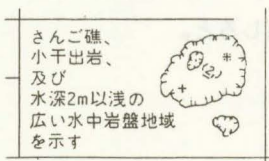 さんご礁、
小干出岩、
及び
水深2m以浅の
広い水中岩盤地域
を示す